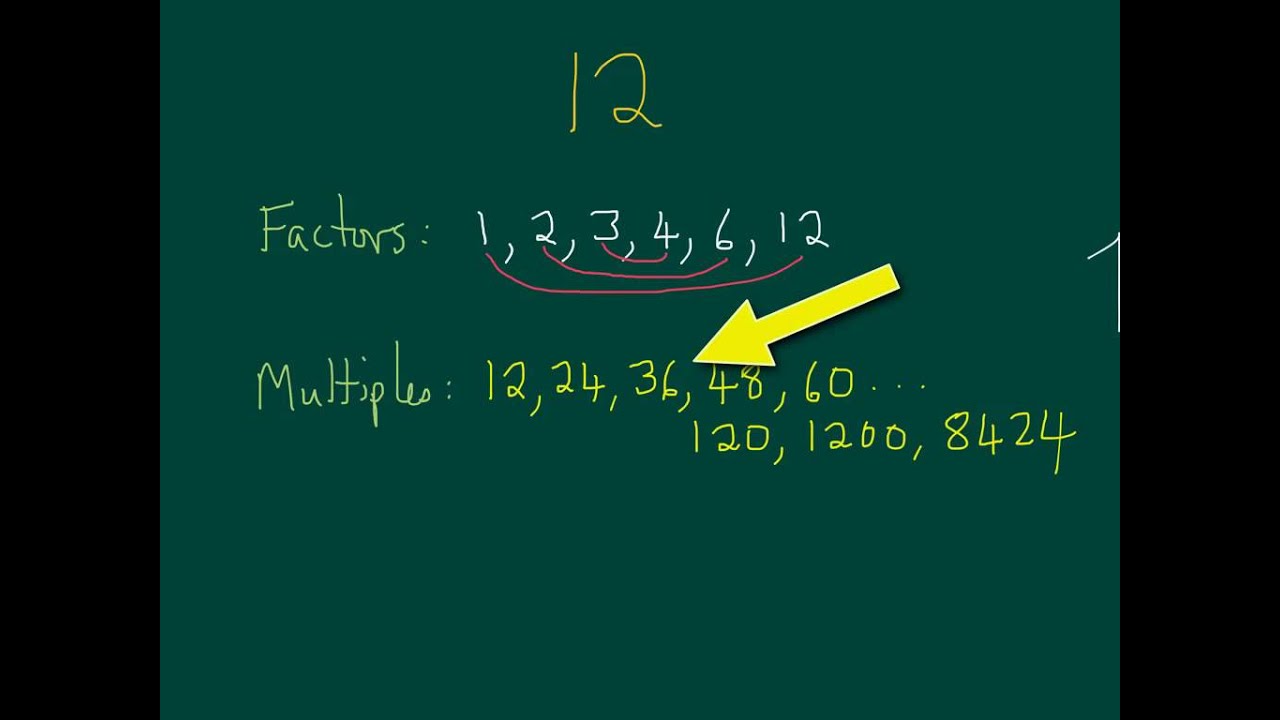 12
Factors: 1, 2, 3, 4, 6, 12
Multiples: 12, 24, 36, 48, 60 ...
120, 1200, 8424